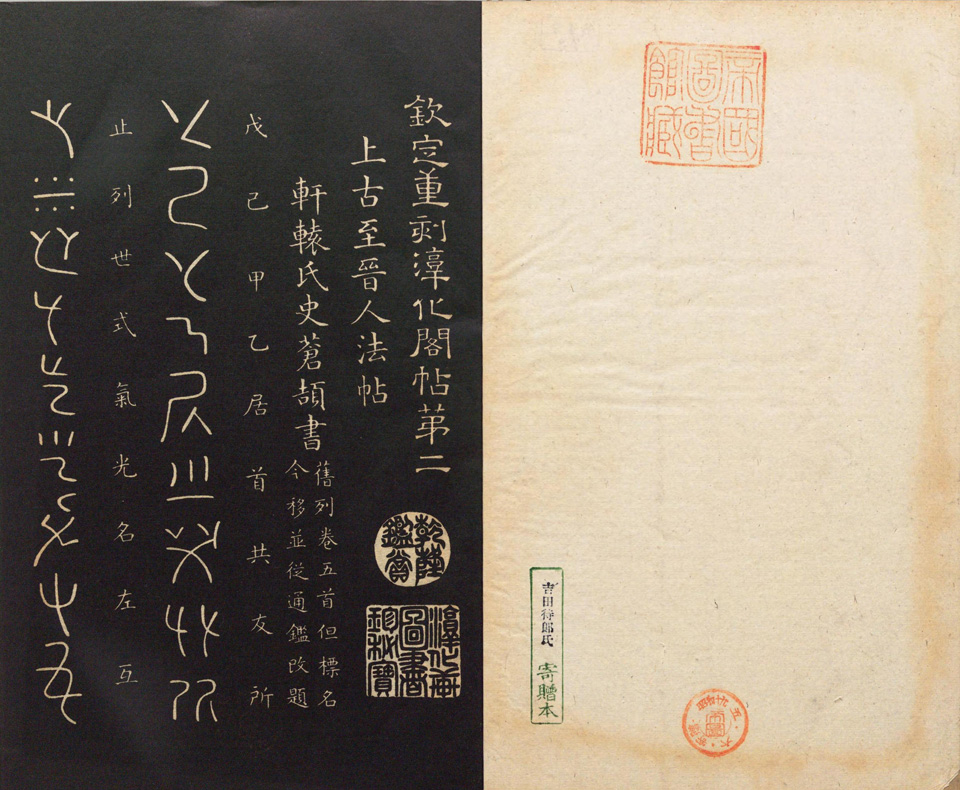 帝國圖書館藏
吉田待郎氏
寄贈本
欽定重刻淳化閣帖苐二
乾隆鑑賞
淳化軒圖書珍秘寶
上古至晉人法帖
軒轅氏史蒼頡書
舊列卷五首但標名
今移並從通鑑改題
戊己甲乙居首共友所
止列世式氣光名左互